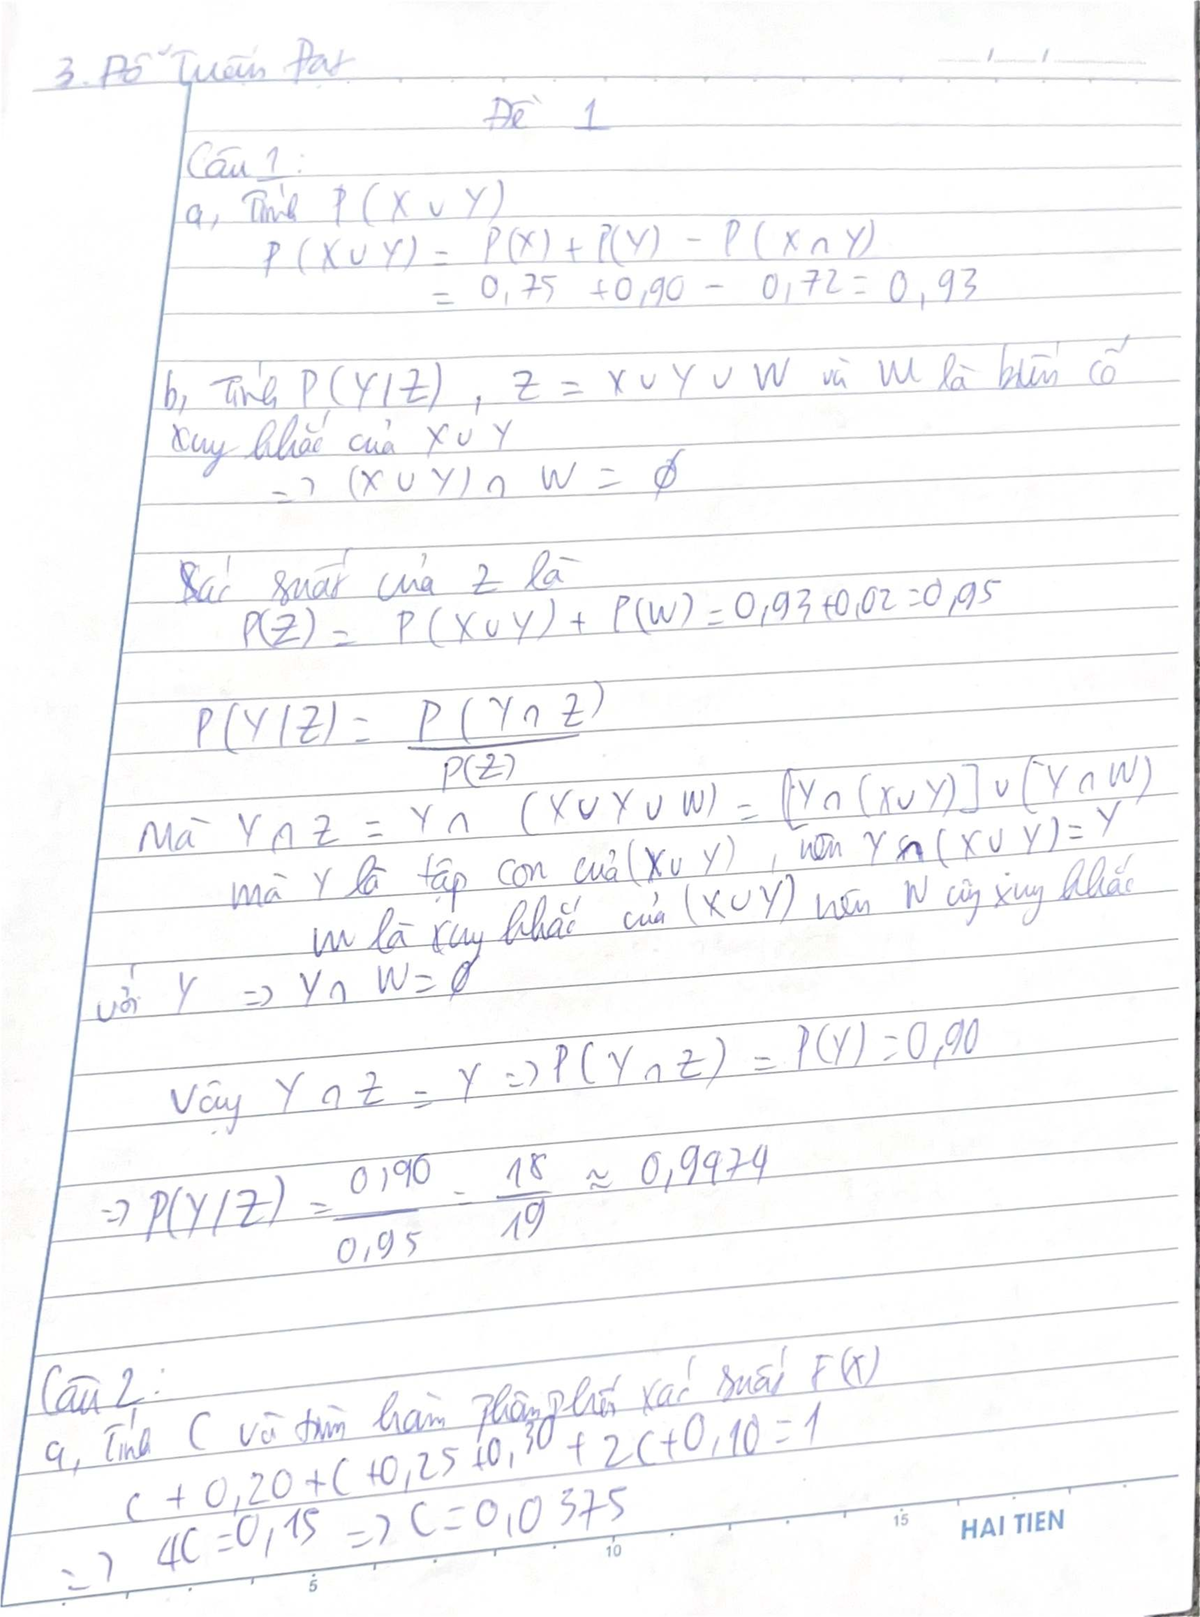 3. Đỗ Tuấn Đạt
Đề 1
Câu 1:
a, Tính P(X∪Y)
P(X∪Y) = P(X) + P(Y) - P(X∩Y)
= 0,75 + 0,90 - 0,72 = 0,93
b, Tính P(Y/Z), Z = X∪Y∪W và W là biến cố
xuy khắc của X∪Y
=> (X∪Y)∩W = ∅
Xác suất của Z là
P(Z) = P(X∪Y) + P(W) = 0,93+0,02=0,95
P(Y/Z) = P(Y∩Z)
P(Z)
Mà Y∩Z = Y∩ (X∪Y∪W) = [Y∩(X∪Y)]∪(Y∩W)
mà Y là tập con của (X∪Y), nên Y∩(X∪Y)=Y
W là xuy khắc của (X∪Y) nên W cũg xuy khắc
với Y => Y∩W=∅
Vậy Y∩Z = Y => P(Y∩Z) = P(Y) = 0,90
=> P(Y/Z) = 0,90 = 18 ≈ 0,9474
0,95 19
Câu 2:
a, Tính C và tìm hàm phân phối xác suất F(x)
C + 0,20 + C + 0,25 + 0,30 + 2C + 0,10 = 1
=> 4C = 0,15 => C = 0,0375
5 10 15 HAI TIEN